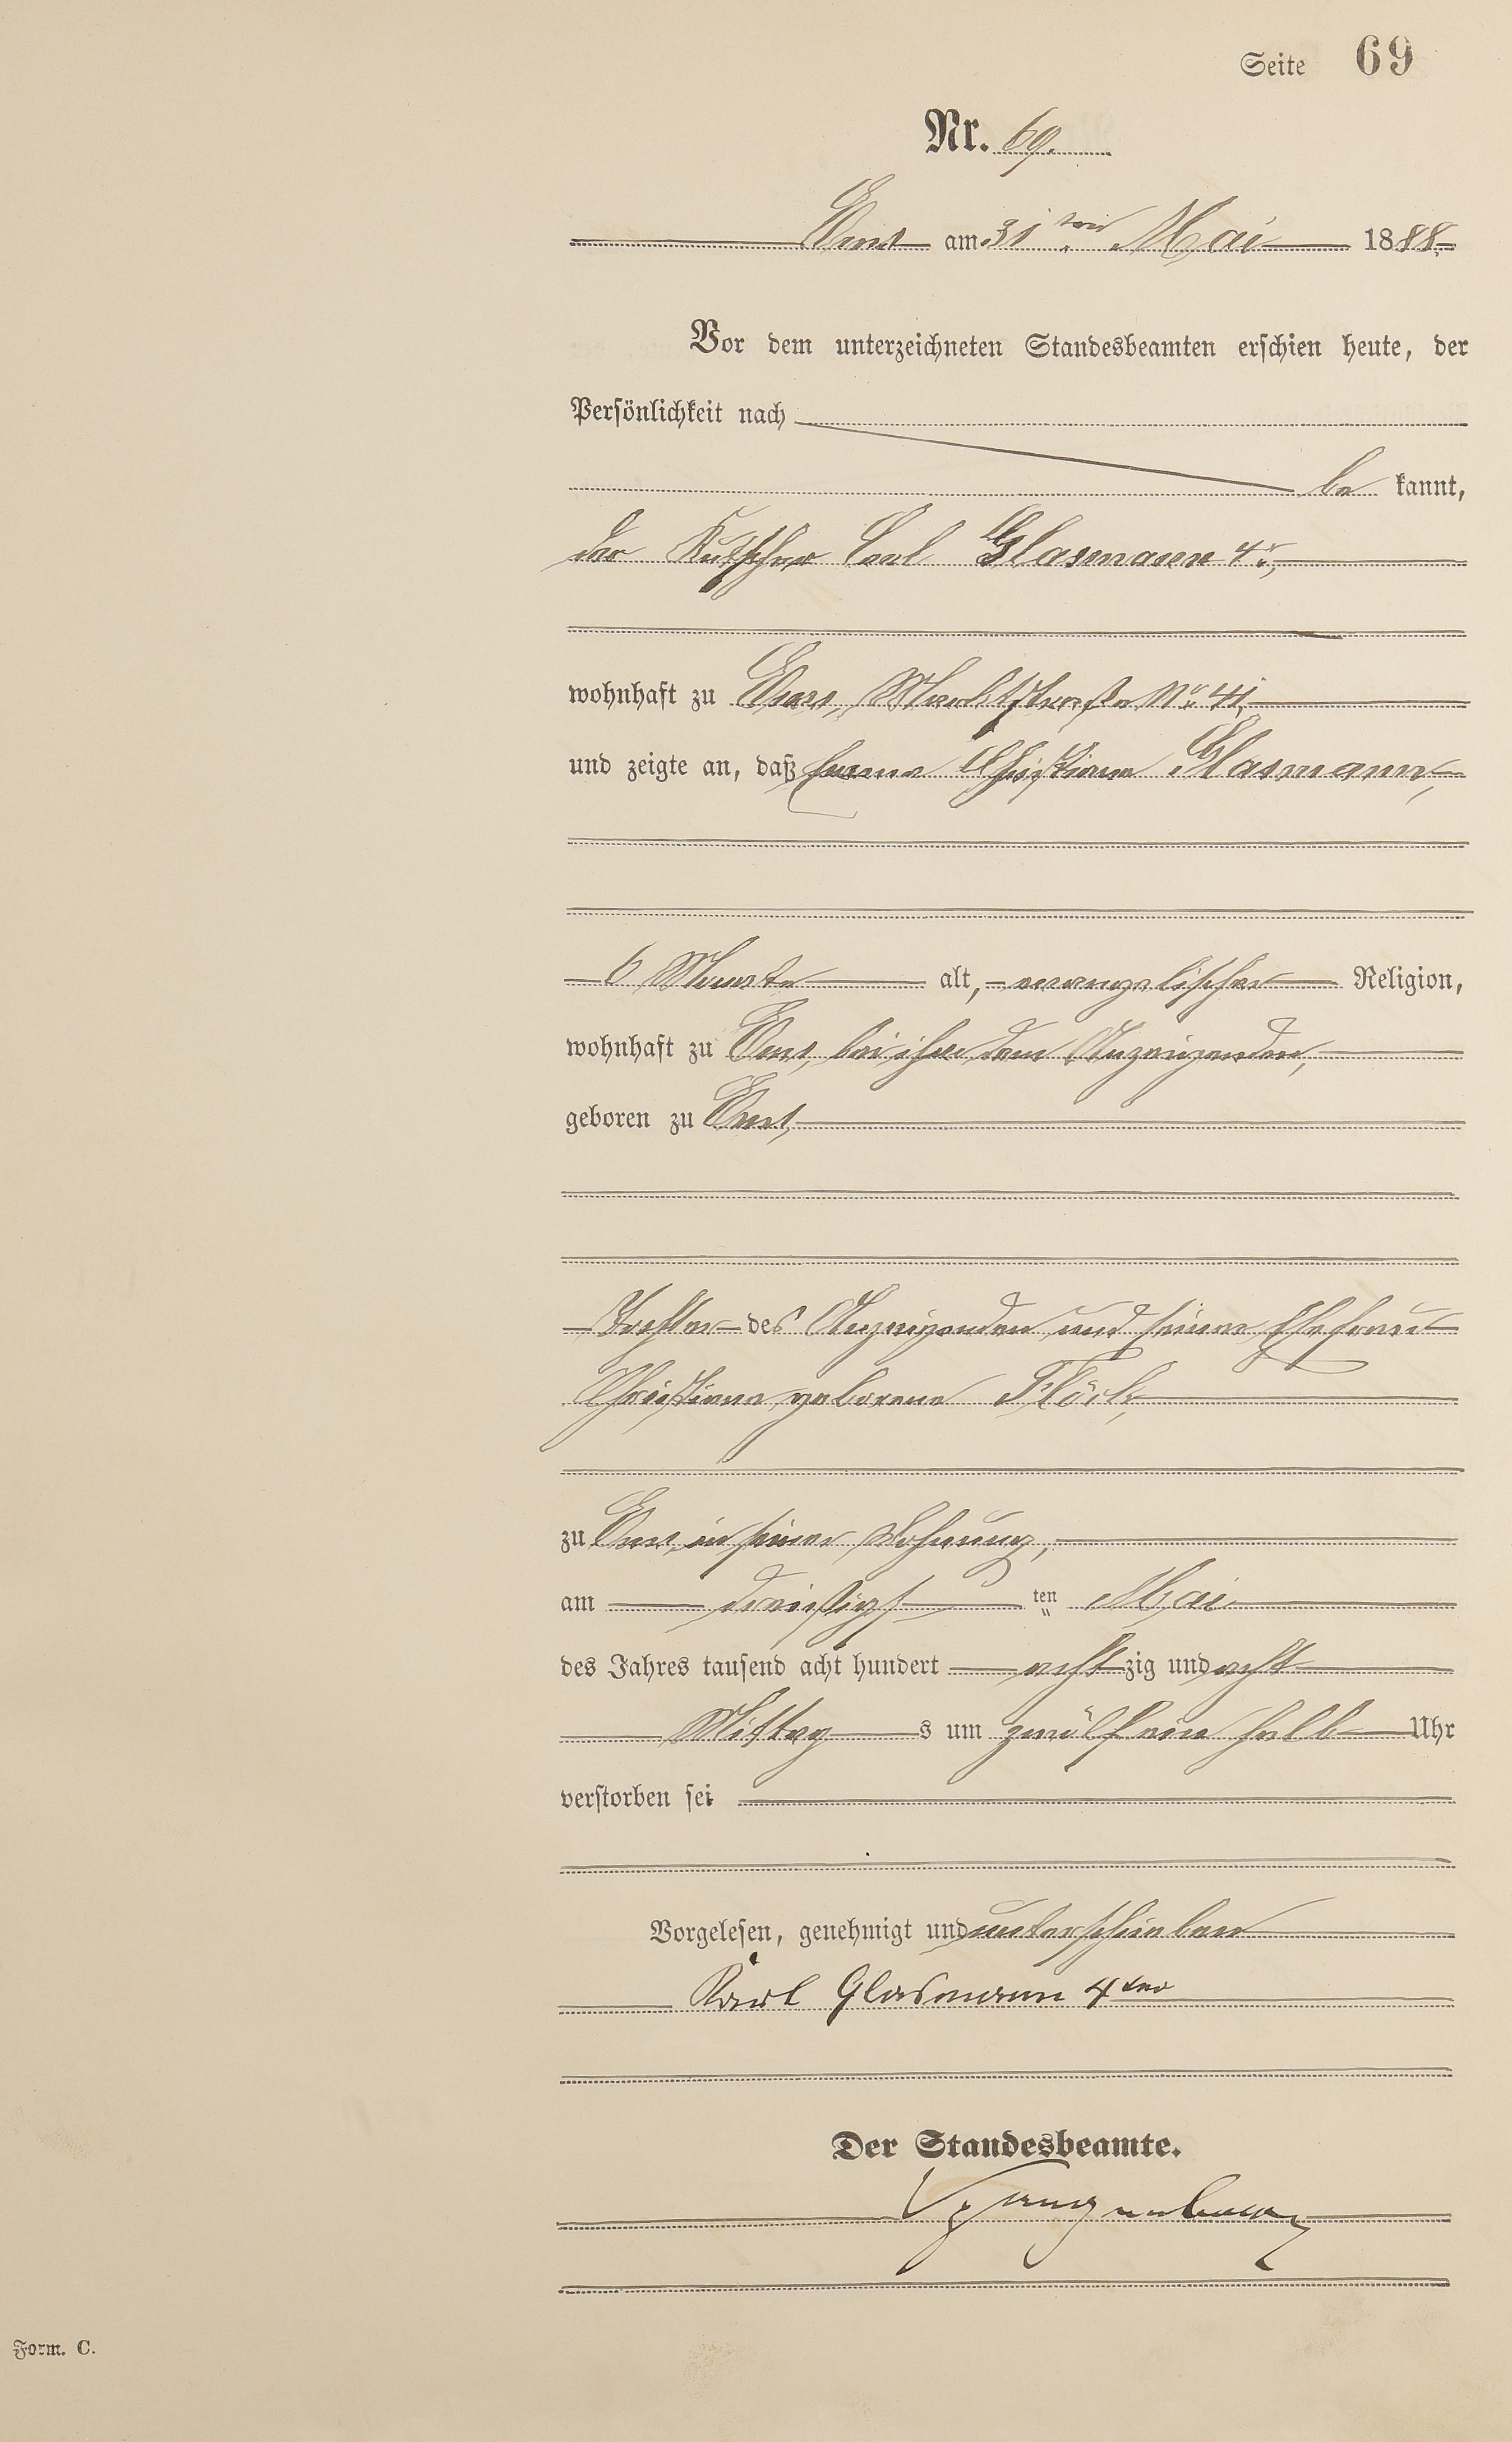 Seite 69
Nr. 69.
Ems am 31ten Mai 1888.
Vor dem unterzeichneten Standesbeamten erschien heute, der
Persönlichkeit nach
be kannt,
der Kutscher Carl Glasmann 4r,
wohnhaft zu Ems, Marktstraße No 41,
und zeigte an, daß Christiane Glasmann,
6 Monate alt, evangelischer Religion,
wohnhaft zu Ems, bei ihm dem Anzeigenden,
geboren zu Ems,
Tochter des Anzeigenden und seiner Ehefrau
Christiane geborene Flöck,
zu Ems in seiner Wohnung,
am dreißigsten Mai
des Jahres tausend acht hundert achtzig und acht
Mittags um zwölf ein halb Uhr
verstorben sei
Vorgelesen, genehmigt und unterschrieben
Karl Glasmann 4ter
Der Standesbeamte.
Form. C.